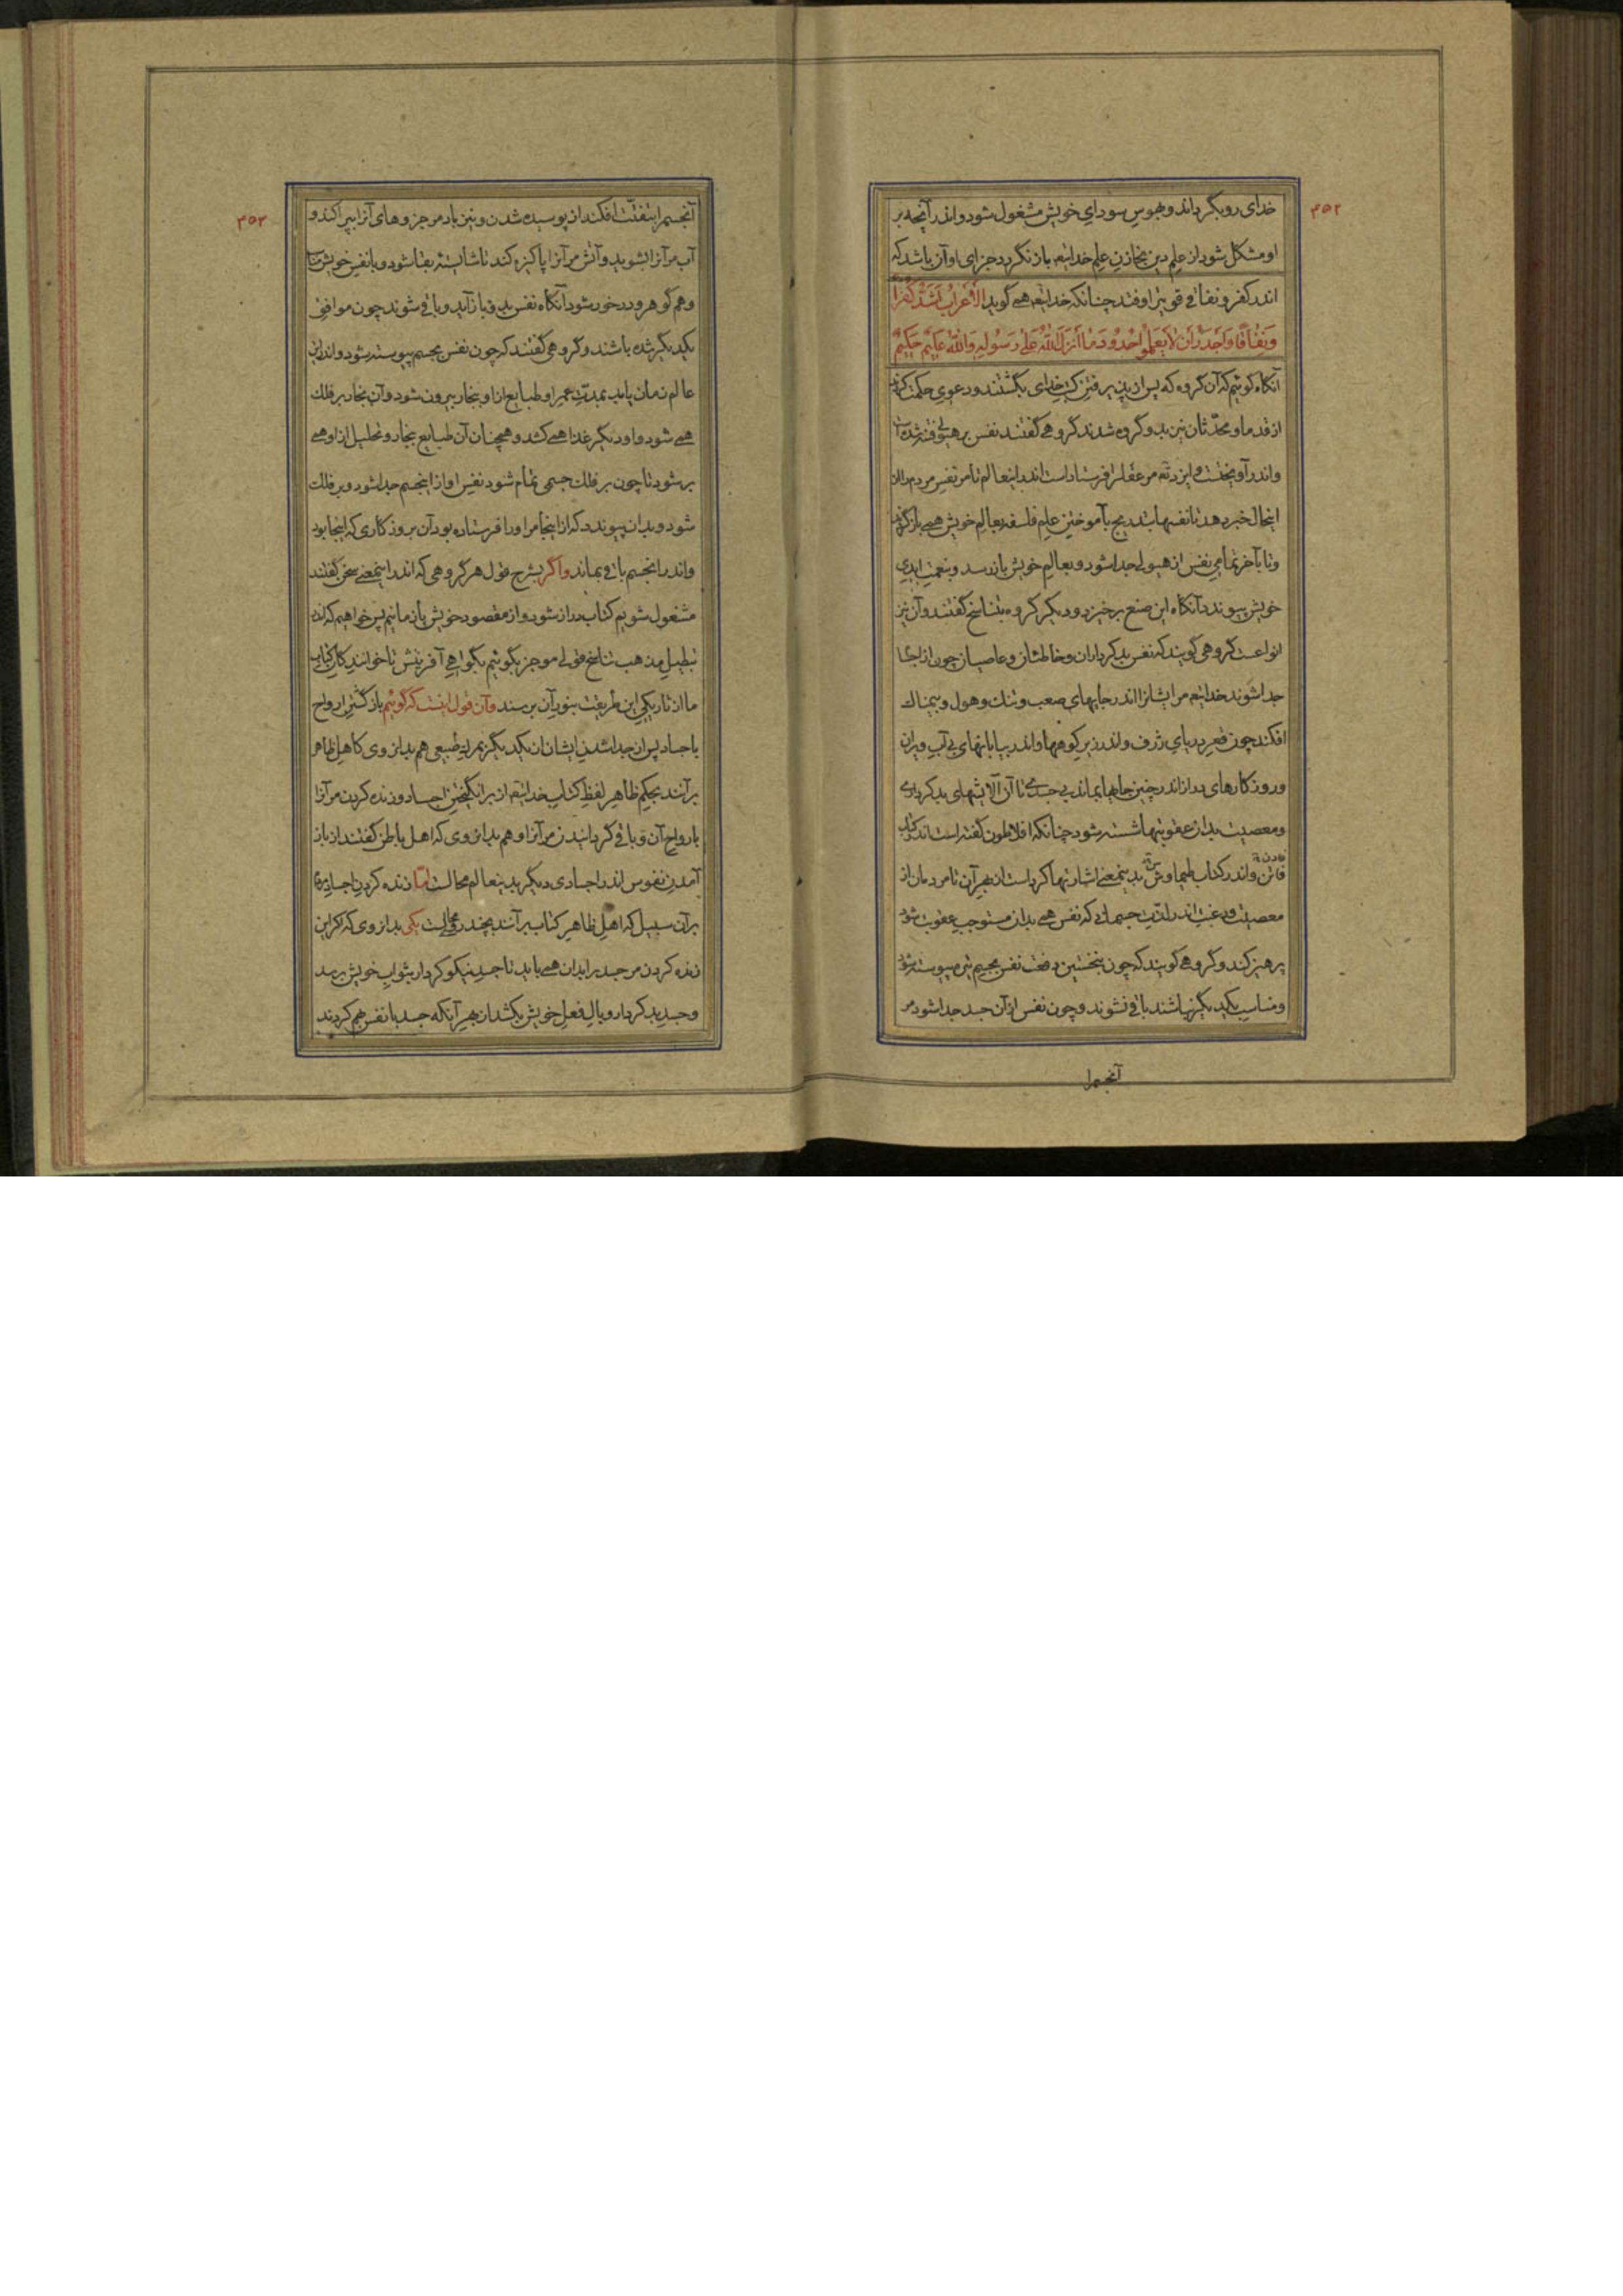 ۳۵۲
خدای روبگرداند و بهوس سودای خویش مشغول شود و اندر آنچه بر
او مشکل شود از علم دین بخازن علم خدایتعه باز نگردد جزای او آن باشد که
اندر کفر و نفاق قویتر اوفتد چنانکه خدایتعه همی گوید الأَعْرَابُ أَشَدُّ كُفْرًا
وَنِفَاقًا وَأَجْدَرُ أَنْ لَا يَعْلَمُوا حُدُودَ مَا أَنْزَلَ اللَّهُ عَلَى رَسُولِهِ وَاللَّهُ عَلِيمٌ حَكِيمٌ
آنگاه گوئیم که آن گروه که پس از پذیرفتن کتب خدای بگشتند و دعوی حکمت کردند
از قدما و محدثان نیز بدو گروه شدند گروهی گفتند نفس بر هیولی فتنه شده است
و اندر آویخت و ایزد تعه مر عقل را فرستاد است اندر اینعالم تا مر نفس مردم را از
اینحال خبر دهد تا نفسها بتدریج بآموختن علم فلسفه بعالم خویش همی باز گردد
و تا بآخر بتمامی نفس از هیولی جدا شود و بعالم خویش باز رسد و بنعمت ابدی
خویش پیوندد آنگاه این صنع برخیزد و دیگر گروه بتناسخ گفتند و آن نیز
انواعست گروهی گویند که نفس بدکرداران و خاطئان و عاصیان چون از اجساد
جدا شوند خدایتعه مر ایشانرا اندر جایهای صعب و تنک و هول و بیمناک
افکند چون قعر دریای ژرف و اندر زیر کوهها و اندر بیابانهای بی آب و ویران
و روزگارهای دراز اندر چنین جایها بماند بی جسدی تا آن آلایشهای بدکرداری
و معصیت بدان عقوبتها شسته شود چنانکه افلاطون گفته است اندر کتاب
فاذن و اندر کتاب طیماوش بدینمعنی اشارتها کرد است از بهر آن تا مردمان از
معصیت و رغبت اندر لذت جسمانی که نفس همی بدان مستوجب عقوبت شود
پرهیز کند و گروهی گویند که چون بنخستین دفعت نفس بجسم پیوسته شود
و مناسب یکدیگر نباشند باقی نشوند و چون نفس از آن جسد جدا شود مر
آنجسمرا
۳۵۳
آنجسمرا بتفتّت افکند از پوسیده شدن و نیز باد مر جزوهای آنرا بپراکند و
آب مر آنرا بشوید و آتش مر آنرا پاکیزه کند تا شایسته بقا شود و با نفس خویش
و هم گوهر و درخور شود آنگاه نفس بدو باز آید و باقی شوند چون موافق
یکدیگر شده باشند و گروهی گفتند که چون نفس بجسم پیوسته شود و اندر این
عالم زمان یابد بمدت عمر او طبایع از او بخار بیرون شود و آن بخار بر فلک
همی شود و او دیگر غذا همی کشد و همچنان آن طبایع بخار و تحلیل از او همی
بر شود تا چون بر فلک جسمی تمام شود نفس او از اینجسم جدا شود و بر فلک
شود و بدان پیوندد که از اینجا مر او را فرستاده بود آن بروزگاری که اینجا بود
و اندر آنجسم باقی بماند و اگر بشرح قول هر گروهی که اندر اینمعنی سخن گفتند
مشغول شویم کتاب دراز شود و از مقصود خویش باز مانیم پس خواهیم که اندر
تبطیل مذهب تناسخ قولی موجز بگوئیم بگواهی آفرینش تا خوانندگان کتاب
ما از تاریکی این طریقت بنور آن برسند و آن قول اینست که گوئیم باز گشتن ارواح
باجساد پس از جدا شدن ایشان از یکدیگر بمرگ طبیعی هم بدانروی که اهل ظاهر
بر آنند بحکم ظاهر لفظ کتاب خدایتعه از برانگیختن اجساد و زنده کردن مر آنرا
بارواح آن و باقی گردانیدن مر آنرا و هم بدانروی که اهل باطن گفتند از باز
آمدن نفوس اندر اجسادی دیگر بدینعالم محالست امّا زنده کردن اجساد مردم
بر آن سبیل که اهل ظاهر کتاب بر آنند بچند روی محالست یکی بدانروی که اگر این
زنده کردن مر جسد را بدان همی باید تا جسد نیکوکردار بثواب خویش رسد
و جسد بدکردار وبال فعل خویش بکشد از بهر آنکه جسد با نفس هم کردند